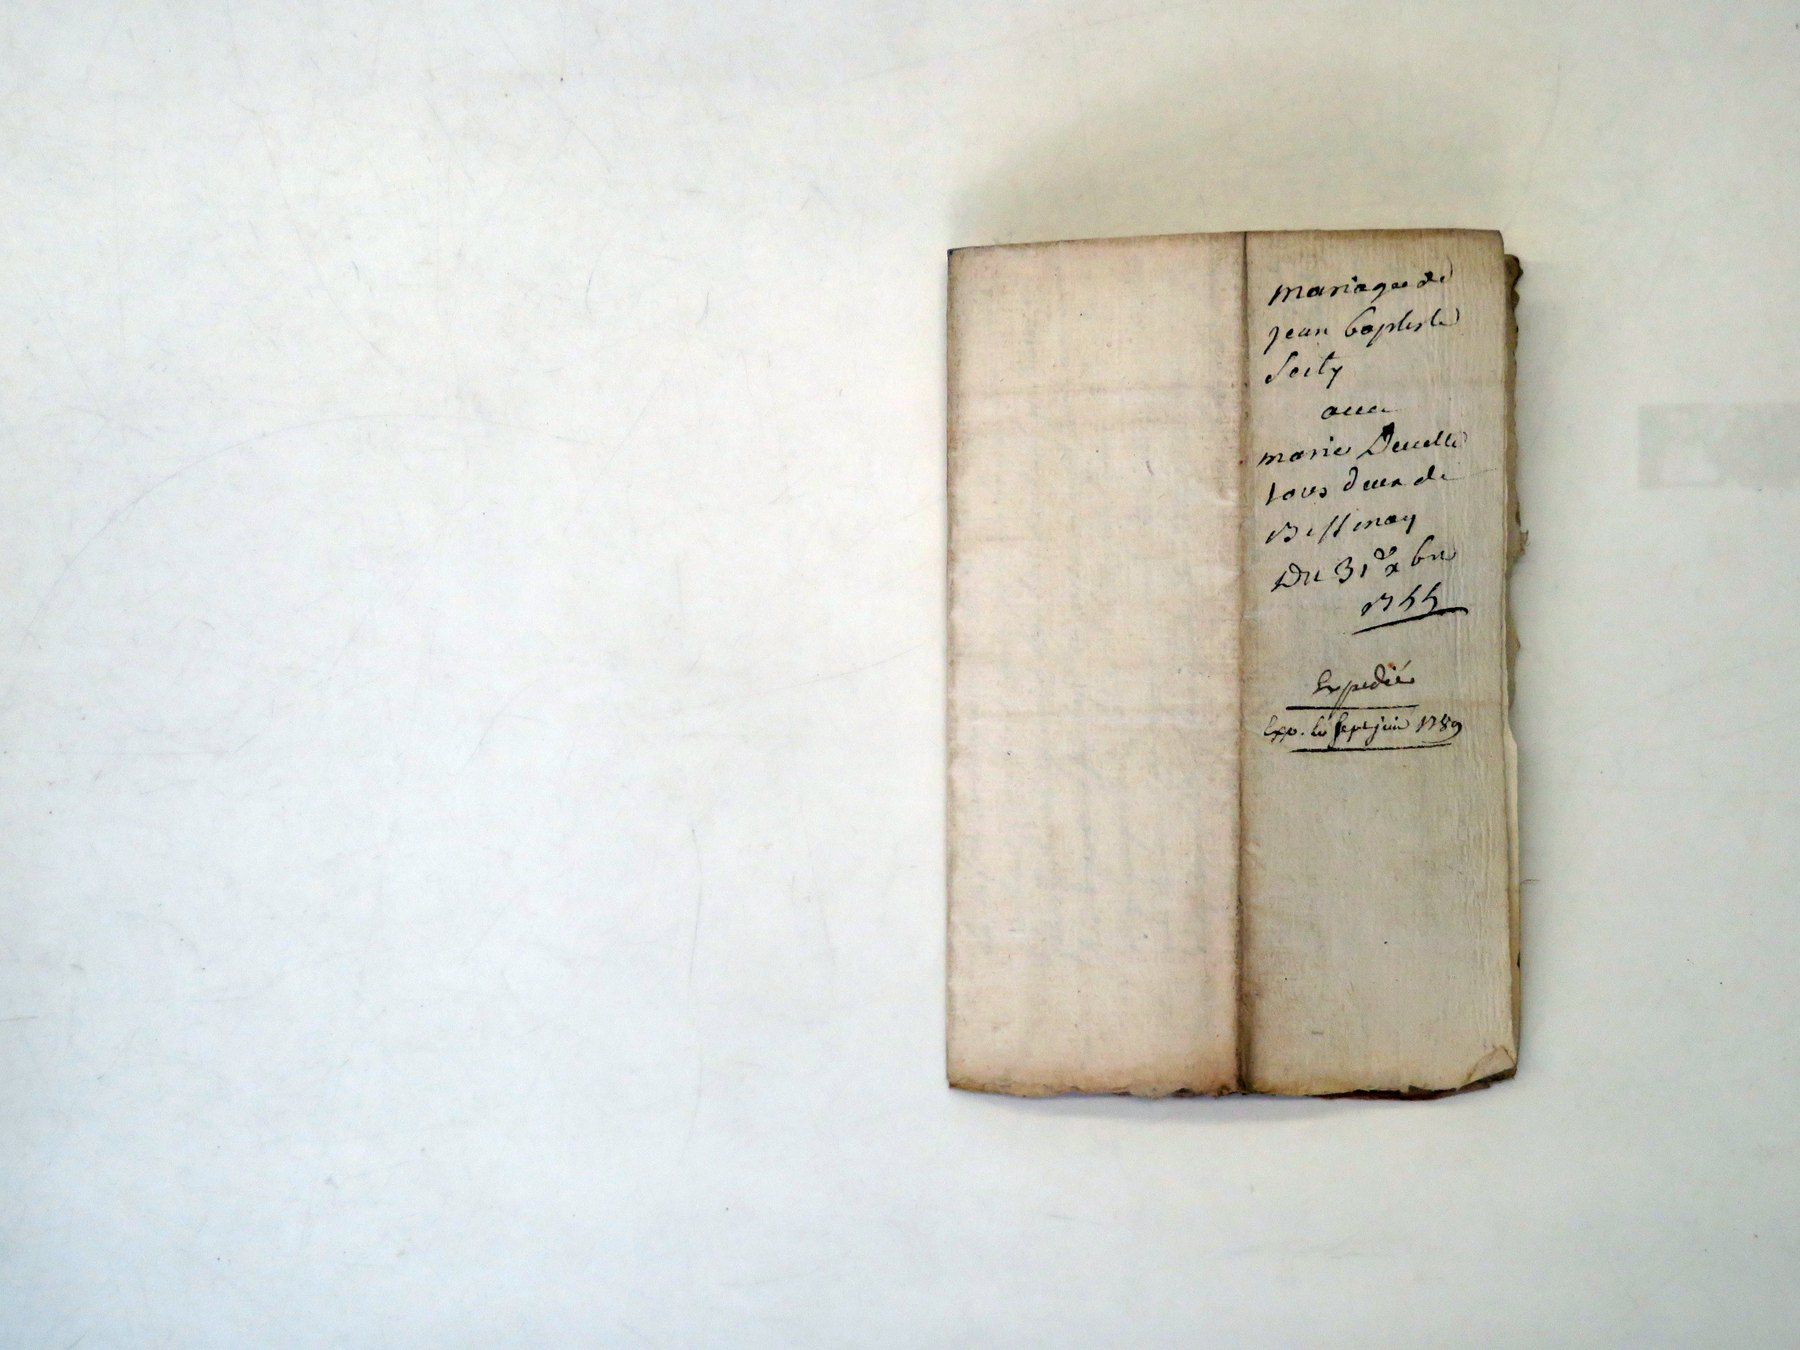 mariage de
jean baptiste
Soity
avec
marie Deuelle
tous deux de
Bessenay
Du 31 Xbre
1744
Expedié
Exp. le sept juin 1789